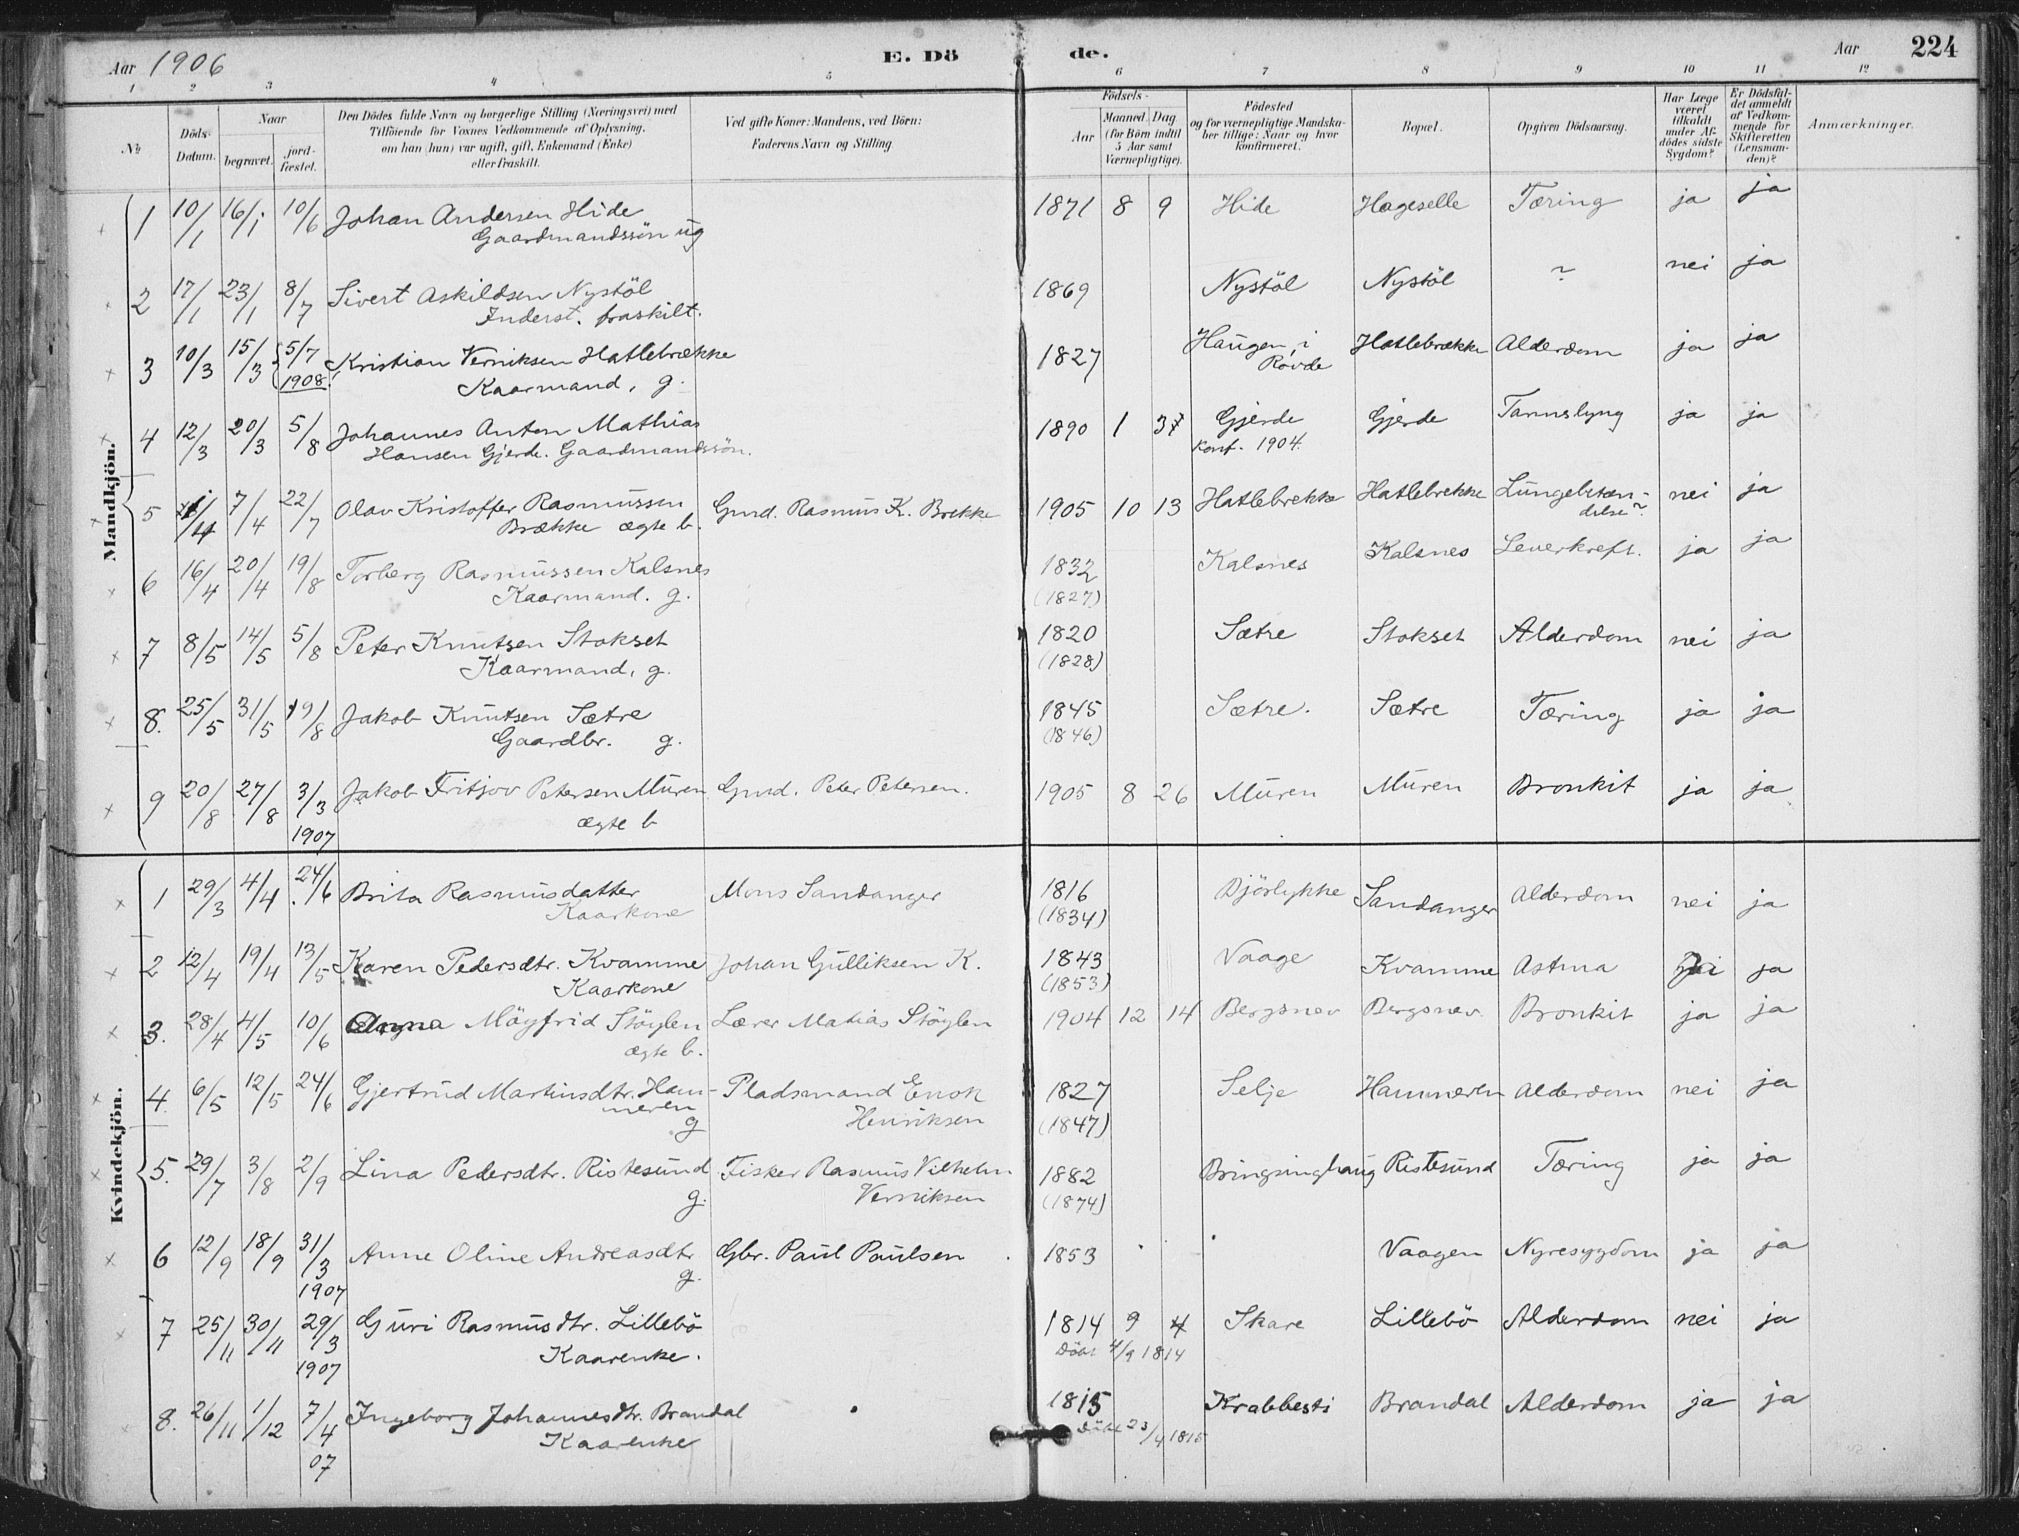 Aar 1906
E. Dö de.
Aar 224
1 2 3 4 5 6 7 8 9 10 11 12
No.
Döds-Datum.
Naar
begravet.
jord-fæstet.
Den Dödes fulde Navn og borgerlige Stilling (Næringsvei) med
Tilföiende for Voxnes Vedkommende af Oplysning,
om han (hun) var ugift, gift, Enkemand (Enke)
eller fraskilt.
Ved gifte Koner: Mandens, ved Börn:
Faderens Navn og Stilling.
Födsels-
Aar
Maaned Dag
(for Börn indtil
5 Aar samt
Værnepligtige).
Födested
og for værnepligtige Mandska-
ber tillige: Naar og hvor
konfirmeret.
Bopæl.
Opgiven Dödsaarsag.
Har Læge
været
tilkaldt
under Af-
dödes sidste
Sygdom?
Er Dödsfal-
det anmeldt
af Vedkom-
mende for
Skifteretten
(Lensman-
den)?
Anmærkninger.
Mandkjön.
1 10/1 16/1 10/6 Johan Andersen Hide 1871 8 9 Hide Hageselle Tæring ja ja
Gaardmandssön ug
2 17/1 23/1 8/7 Sivert Askildsen Nystöl 1869 Nystöl Nystöl ~ nei ja
Inderst. fraskilt.
3 10/3 15/3 5/7 Kristian Verniksen Hatlebrække 1827 Haugen i Hatlebrække Alderdom ja ja
1908 Kaarmand, g. Rovde
4 12/3 20/3 5/8 Johannes Anton Mathias 1890 1 Gjerde Gjerde ja ja
Hansen Gjerde. Gaardmandssön. Konf. 1904.
5 7/4 22/7 Olav Kristoffer Rasmussen Gmd. Rasmus K. Brekke 1905 10 13 Hatlebrekke Hatlebrekke Lungebetæn- nei ja
Brække ægte b. delse~.
6 16/4 20/4 19/8 Torberg Rasmussen Kalsnes 1832 Kalsnes Kalsnes Leverkreft. ja ja
Kaarmand. g. (1827)
7 8/5 14/5 5/8 Peter Knutsen Stokset 1820 Sætre Stokset Alderdom nei ja
Kaarmand, g. (1828)
8. 25/5 31/5 19/8 Jakob Knutsen Sætre 1845 Sætre. Sætre Tæring ja ja
Gaardbr. g. (1846)
9 20/8 27/8 3/3 Jakob Fritjov Petersen Muren Gmd. Peter Petersen. 1905 8 26 Muren Muren Bronkit ja ja
1907 ægte b
Kvindekjön.
1 29/3 4/4 24/6 Brita Rasmusdatter Mons Sandanger 1816 Djörlykke Sandanger Alderdom nei ja
Kaarkone (1834)
2 12/4 19/4 13/5 Karen Pedersdtr. Kvamme Johan Gulliksen K. 1843 Vaage Kvamme Astma ja
Kaarkone (1853)
3. 28/4 4/5 10/6 Anna Möyfrid Stöylen Lærer Matias Stöylen 1904 12 14 Bergsnev Bergsnev. Bronkit ja ja
ægte b.
4. 6/5 12/5 24/6 Gjertrud Martinsdtr. Ham- Pladsmand Enok 1827 Selje Hammeren Alderdom nei ja
meren Henriksen (1847)
g
5. 29/7 3/8 2/9 Lina Pedersdtr. Ristesund Fisker Rasmus Vilhelm 1882 Bringsinghaug Ristesund Tæring ja ja
g. Verniksen (1874)
6 12/9 18/9 31/3 Anne Oline Andreasdtr Gbr. Paul Paulsen 1853 Vaagen Nyresygdom ja ja
1907 g.
7 25/11 30/11 29/3 Guri Rasmusdtr. Lillebö 1814 9 4 Skare Lillebö Alderdom nei ja
1907 Kaarenke. Döbt 4/9 1814
8. 26/11 1/12 7/4 Ingeborg Johannesdtr. Brandal 1815 Krabbesti Brandal Alderdom ja ja
07 Kaarenke Döbt 23/4 1815